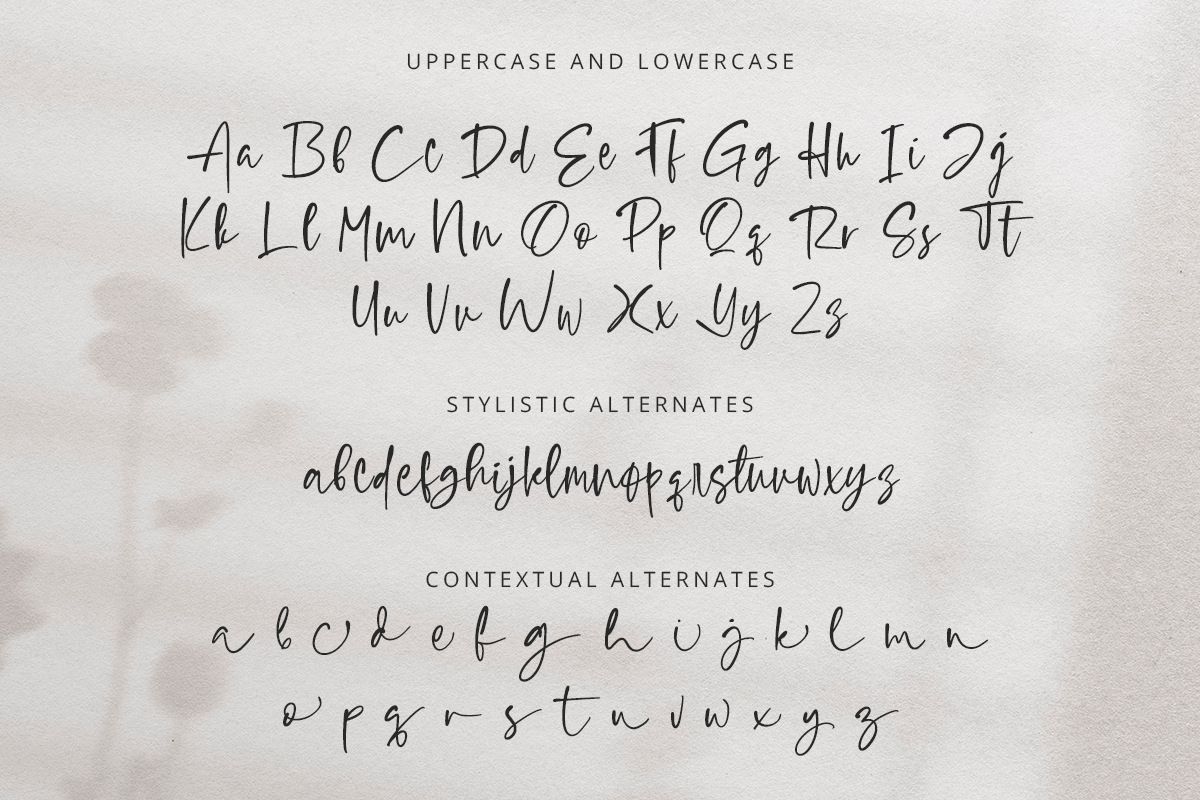 UPPERCASE AND LOWERCASE
Aa Bb Cc Dd Ee Ff Gg Hh Ii Jj
Kk Ll Mm Nn Oo Pp Qq Rr Ss Tt
Uu Vv Ww Xx Yy Zz
STYLISTIC ALTERNATES
abcdefghijklmnopqrstuvwxyz
CONTEXTUAL ALTERNATES
a b c d e f g h i j k l m n
o p q r s t u v w x y z